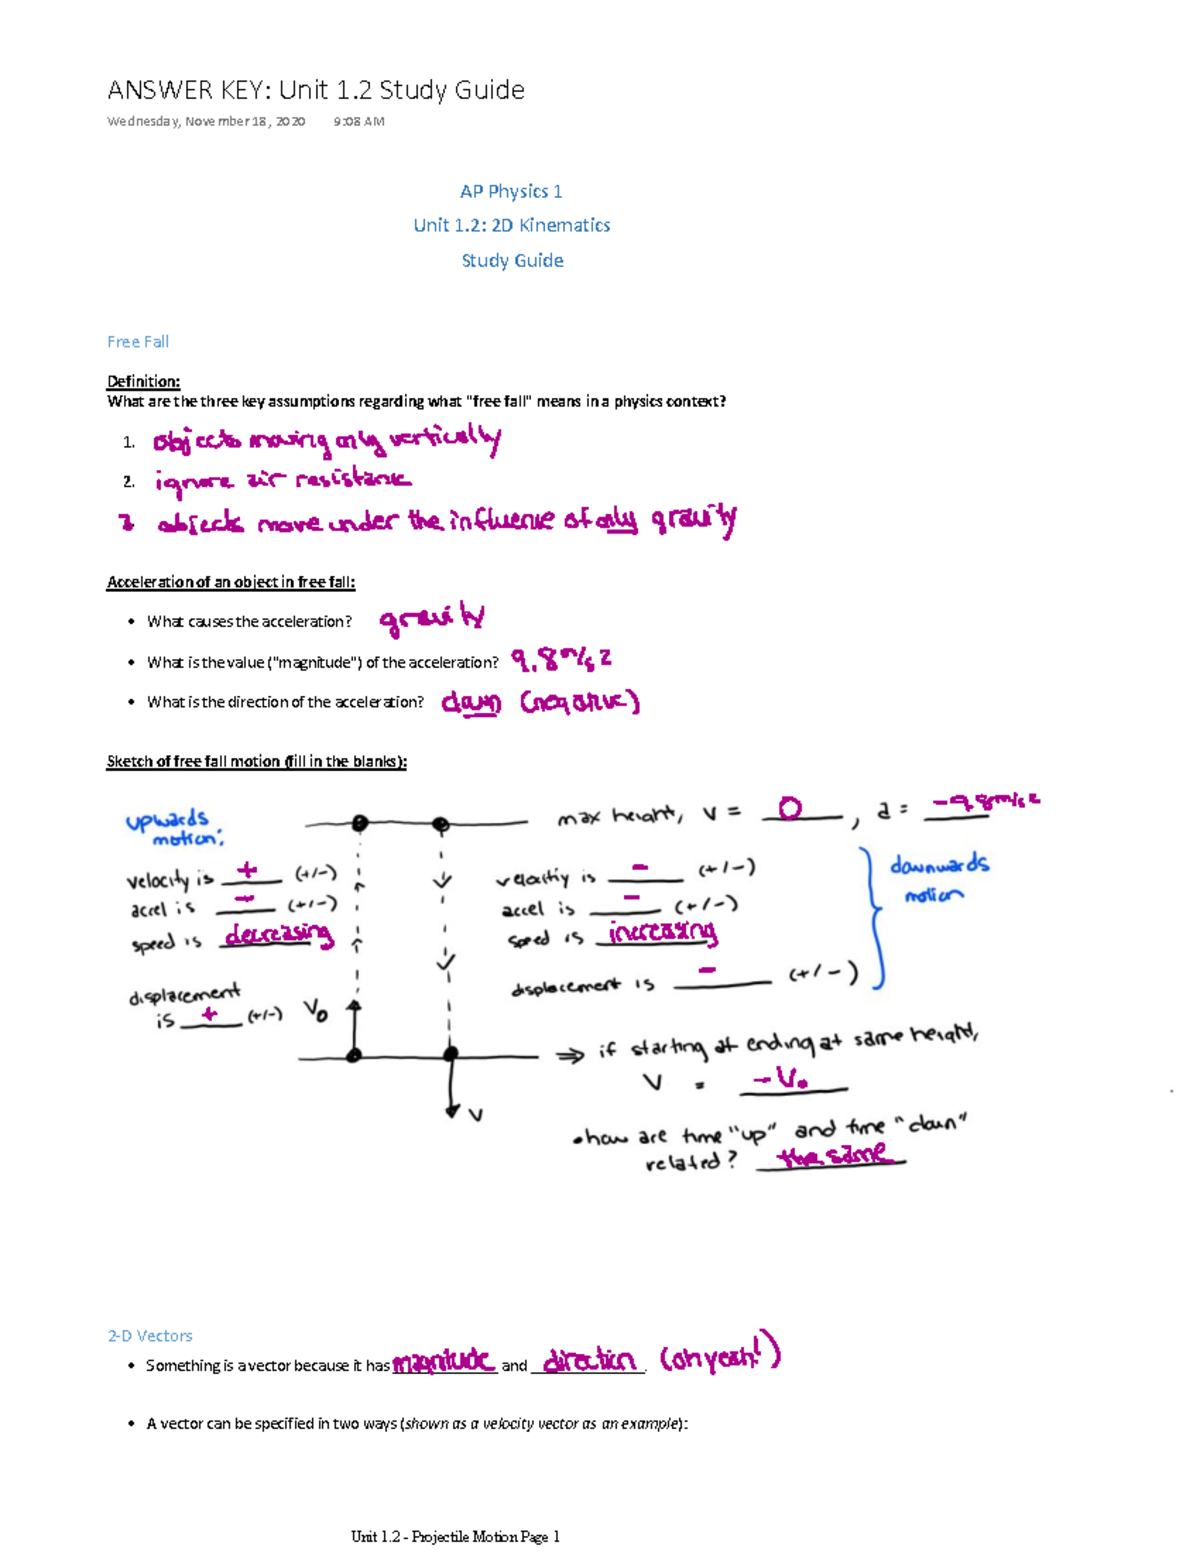 ANSWER KEY: Unit 1.2 Study Guide
Wednesday, November 18, 2020 9:08 AM
AP Physics 1
Unit 1.2: 2D Kinematics
Study Guide
Free Fall
Definition:
What are the three key assumptions regarding what "free fall" means in a physics context?
1. objects moving only vertically
2. ignore air resistance
3 objects move under the influence of only gravity
Acceleration of an object in free fall:
• What causes the acceleration? gravity
• What is the value ("magnitude") of the acceleration? 9.8 m/s2
• What is the direction of the acceleration? down (negative)
Sketch of free fall motion (fill in the blanks):
upwards
motion:
max height, v = 0, a = -9.8 m/s2
velocity is + (+/-)
accel is - (+/-)
speed is decreasing
displacement
is + (+/-)
V₀
velocity is - (+/-)
accel is - (+/-)
speed is increasing
displacement is - (+/-)
downwards
motion
V
⇒ if starting at ending at same height,
V = -V₀
• how are time "up" and time "down"
related? the same
2-D Vectors
• Something is a vector because it has magnitude and direction. (oh yeah!)
• A vector can be specified in two ways (shown as a velocity vector as an example):
Unit 1.2 - Projectile Motion Page 1